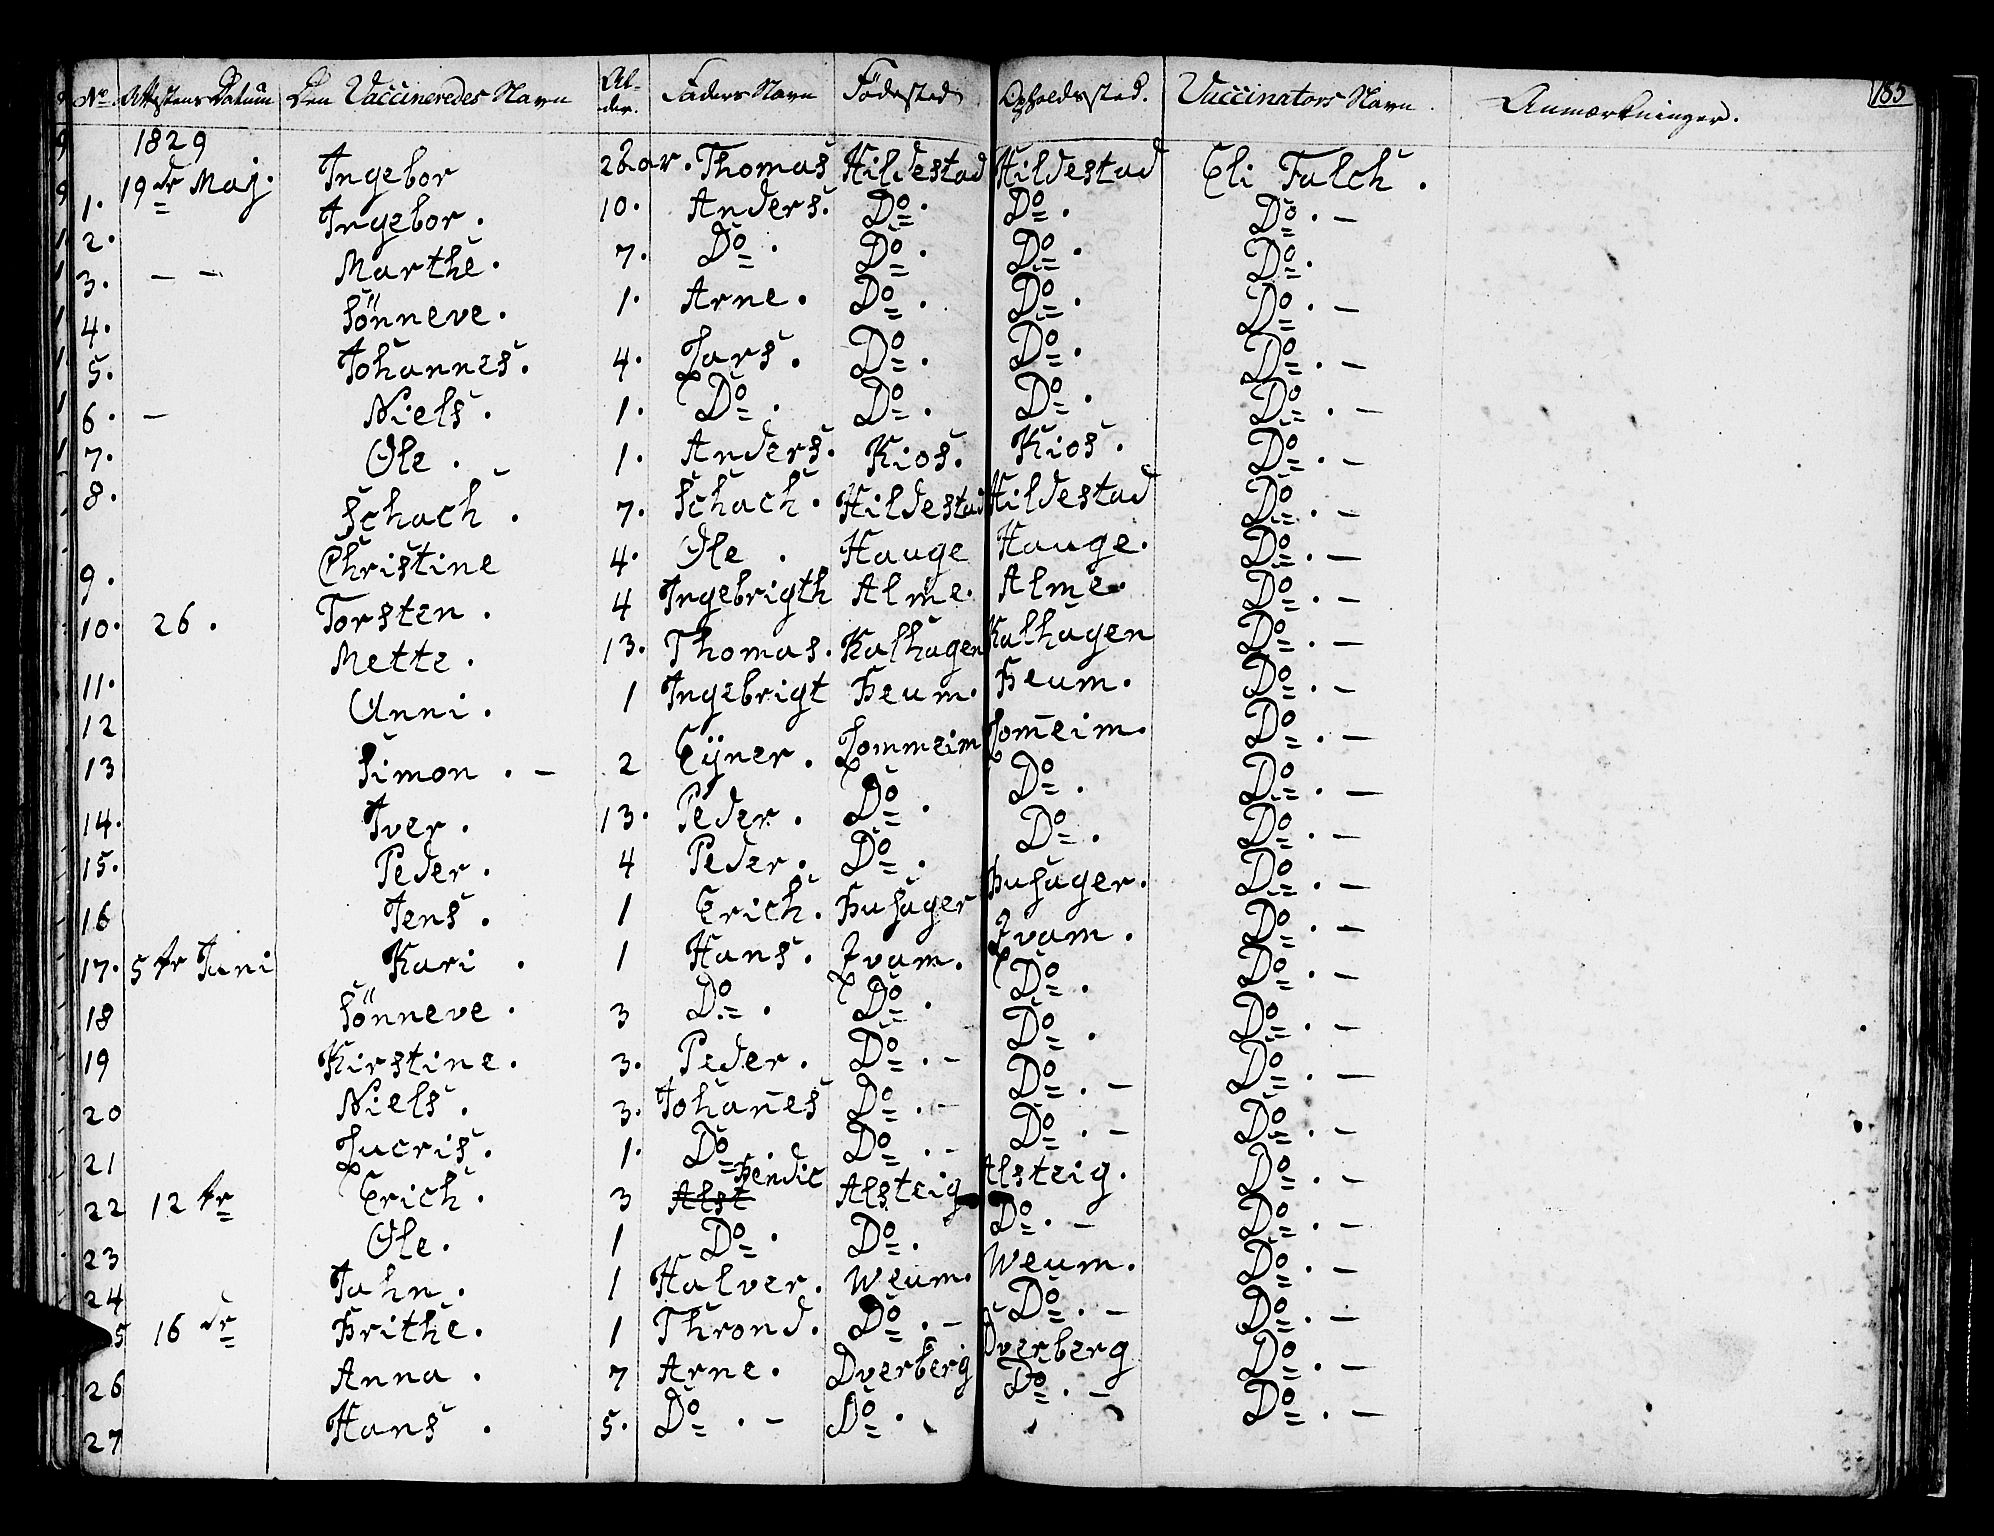 185
No. Attestens Datum Den Vaccineredes Navn Alder. Faders Navn Födested Opholdssted. Vaccinators Navn. Anmærkninger.
1829
1. 19de Maj. Ingebor 2 aar. Thomas Hildestad Hildestad Eli Falch.
2. Ingebor. 10. Anders. Do. Do. Do. –
3. – – Marthe. 7. Do. Do. Do. Do.
4. Sönneve. 1. Arne. Do. Do. Do. –
5. Johannes. 4. Lars. Do. Do. Do. –
6. – Niels. 1. Do. Do. Do. Do. –
7. Ole. 1. Anders. Kios. Kios. Do. –
8. Schach. 7. Schach. Hildestad Hildestad Do. –
9. Christine 4. Ole. Hauge Hauge. Do. –
10. 26. Torsten. 4 Ingebrigth Alme. Alme. Do. –
11. Mette. 13. Thomas. Kalhagen Kalhagen Do. –
12 Anni. 1 Ingebrigt Heum. Heum. Do. –
13 Simon. – 2 Ejner. Lommeim Lom̄eim. Do. –
14. Iver. 13. Peder. Do. Do. Do. –
15. Peder. 4 Peder. Do. Do. Do. –
16 Jens. 1 Erich. Husager Husager. Do. –
17. 5te Juni Kari. 1 Hans. Qvam. Qvam. Do. –
18 Sönneve. 3 Do. Do. Do. Do. –
19 Kirstine. 3. Peder. Do. – Do. Do. –
20 Niels. 3. Johan̄es Do. – Do. – Do. –
21 Lucris. 1. Do. Do. – Do. – Do. –
22 12te Erich. 3 Alst Hendic Alsteig Alsteig. Do. –
23 Ole. 1 Do. Do. Do. – Do. –
24 Jahn. 1 Halver. Weum. Weum. Do. –
5 16de Brithe. 1 Thrond. Do. – Do. – Do. –
26 Anna. 7 Arne. Dverberg Dverberg Do. –
27 Hans. 5. Do. – Do. Do. – Do. –